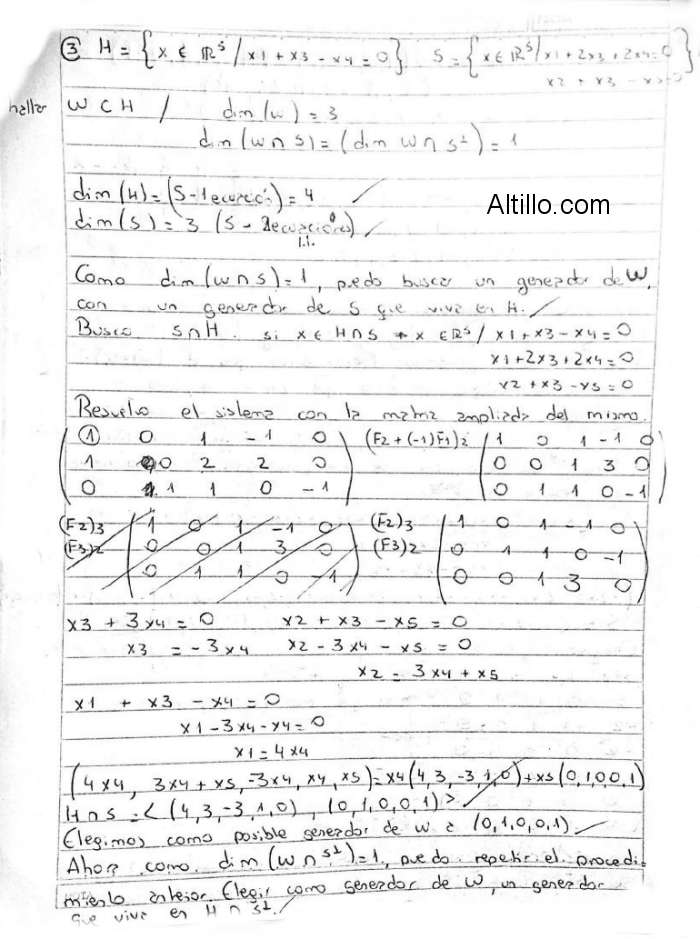 ③ H = { x ∈ ℝ⁵ / x1 + x3 - x4 = 0 } S = { x ∈ ℝ⁵ / x1 + 2x3 + 2x4 = 0
x2 + x3 - x5 = 0 }
hallar W ⊂ H / dim (W) = 3
dim (W ∩ S) = (dim W ∩ S⊥) = 1
dim (H) = (5 - 1 ecuación) = 4 ✓
Altillo.com
dim (S) = 3 (5 - 2 ecuaciones) ✓
l.i.
Como dim (W ∩ S) = 1, puedo buscar un generador de W,
con un generador de S que viva en H. ✓
Busco S ∩ H. si x ∈ H ∩ S → x ∈ ℝ⁵ / x1 + x3 - x4 = 0
x1 + 2x3 + 2x4 = 0
x2 + x3 - x5 = 0
Resuelvo el sistema con la matriz ampliada del mismo.
① 0 1 -1 0 (F2 + (-1) F1)2 1 0 1 -1 0
1 0 2 2 0 0 0 1 3 0
0 1 1 0 -1 0 1 1 0 -1
(F2)3 1 0 1 -1 0 (F2)3 1 0 1 -1 0
(F3)2 0 0 1 3 0 (F3)2 0 1 1 0 -1
0 1 1 0 -1 0 0 1 3 0
x3 + 3x4 = 0 x2 + x3 - x5 = 0
x3 = -3x4 x2 - 3x4 - x5 = 0
x2 = 3x4 + x5
x1 + x3 - x4 = 0
x1 - 3x4 - x4 = 0
x1 = 4x4
(4x4, 3x4 + x5, -3x4, x4, x5) = x4 (4,3,-3,1,0) + x5 (0,1,0,0,1)
H ∩ S = < (4,3,-3,1,0), (0,1,0,0,1) > ✓
Elegimos como posible generador de W a (0,1,0,0,1) ✓
Ahora como dim (W ∩ S⊥) = 1, puedo repetir el procedi-
miento anterior. Elegir como generador de W, un generador
que viva en H ∩ S⊥ ✓